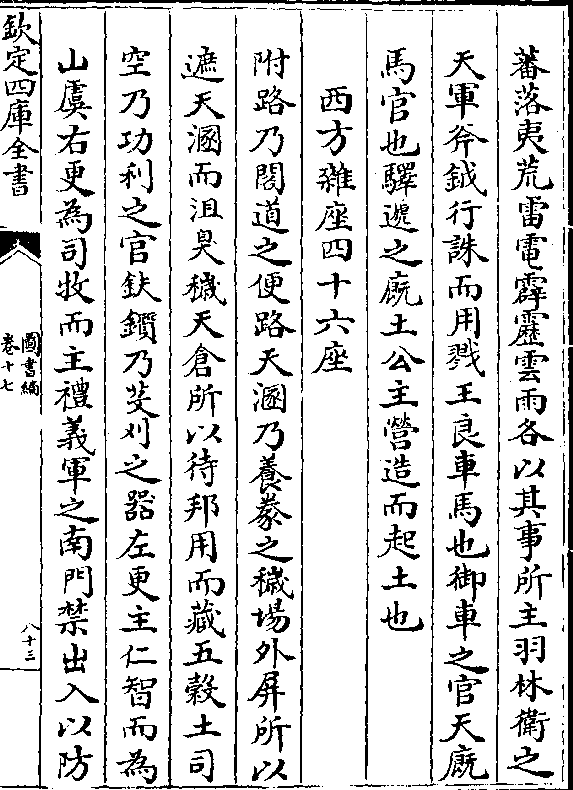 蕃落夷荒雷電霹靂雲雨各以其事所主羽林衛之
天軍斧鉞行誅而用戮王良車馬也御車之官天廐
馬官也驛遞之廐土公主營造而起土也
西方雜座四十六座
附路乃閣道之便路天溷乃養豢之穢場外屏所以
遮天溷而沮臭穢天倉所以待邦用而藏五穀土司
空乃功利之官鈇鑕乃芟刈之器左更主仁智而為
山虞右更為司牧而主禮義軍之南門禁出入以防
欽定四庫全書
圖書編
卷十七
八十三